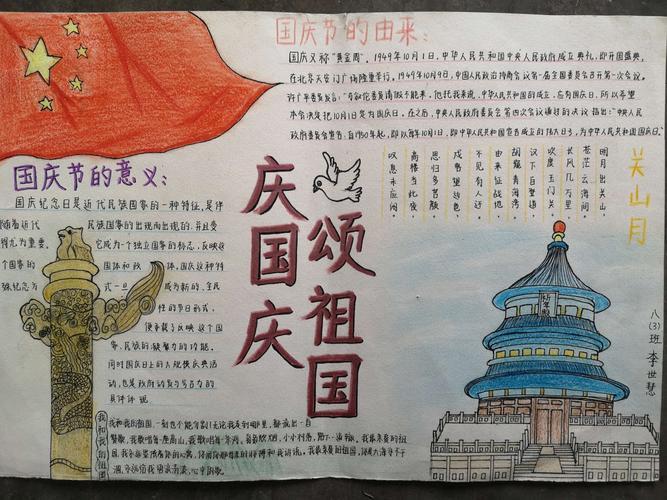 国庆节的由来:
国庆又称"黄金周"。1949年10月1日,中华人民共和国中央人民政府成立典礼,即开国盛典,
在北京天安门广场隆重举行。1949年10月9日,中国人民政治协商会议第一届全国委员会召开第一次会议。
许广平委员发言:"马叙伦委员请假不能来,他托我来说,中华人民共和国的成立,应有国庆日,所以希望
本会决定把10月1日定为国庆日。在之后,中央人民政府委员会第四次会议通过的决议指出:"中央人民
政府委员会宣告:自1950年起,即以每年10月1日,即中华人民共和国宣告成立的伟大日子,为中华人民共和国国庆日。"
关山月
明月出关山,
苍茫云海间。
长风几万里,
吹度玉门关。
汉下白登道,
胡窥青海湾。
由来征战地,
不见有人还。
戍客望边色,
思归多苦颜。
高楼当此夜,
叹息未应闲。
国庆节的意义:
国庆纪念日是近代民族国家的一种特征,是伴
随着近代
民族国家的出现而出现的,并且变
得尤为重要。
它成为一个独立国家的标志,反映这
个国家的
国体和政
体,国庆这种特
殊纪念方
式一旦
成为新的、全民
性的节日形式,
便承载了反映这个国
家、民族的凝聚力的功能。
同时国庆日上的大规模庆典活
动,也是政府动员与号召力的
具体体现
颂祖国
庆国庆
祈年殿
八(3)班 李世慧
我和我的祖国
我和我的祖国,一刻也不能分割!无论我走到哪里,都流出一首
赞歌,我歌唱每一座高山,我歌唱每一条河,袅袅炊烟,小小村落,路上一道辙。我最亲爱的祖